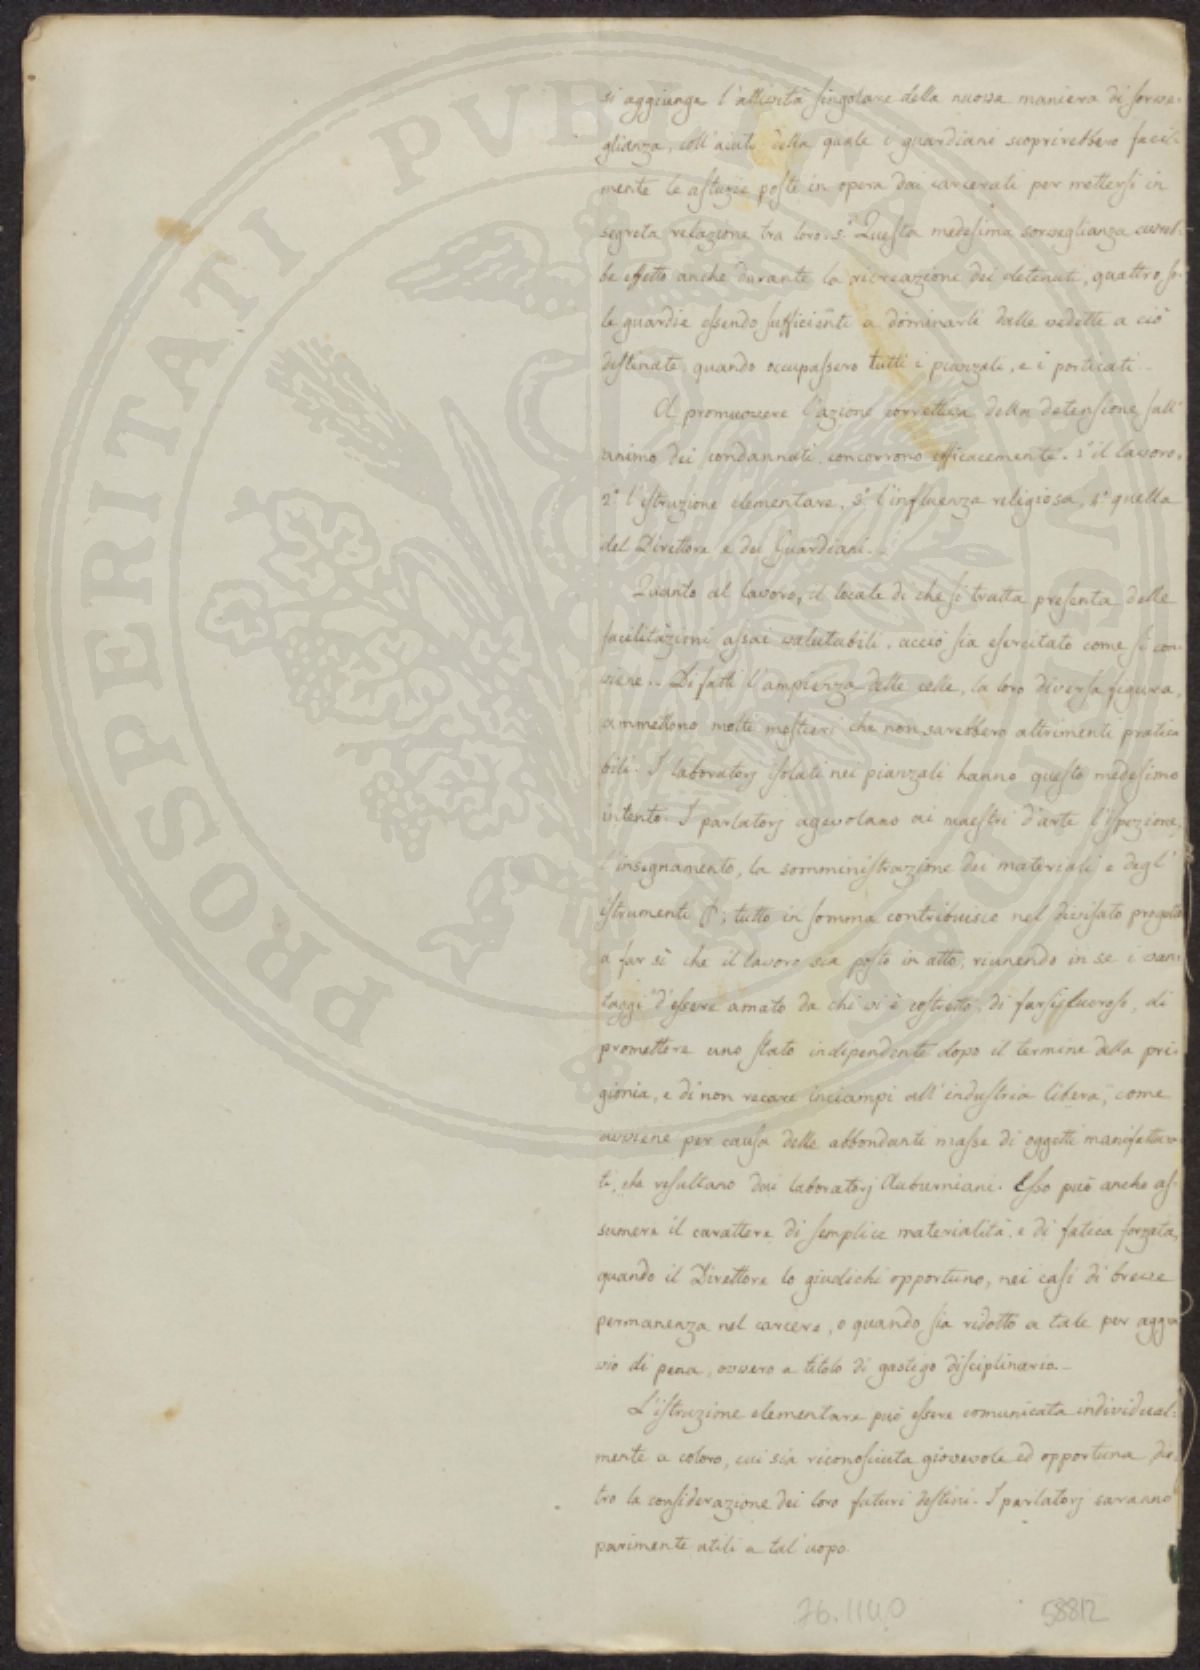 si aggiunga l'attività singolare della nuova maniera di sorve-
glianza, coll'aiuto della quale i guardiani scoprirebbero facil-
mente le astuzie poste in opera dai carcerati per mettersi in
segreta relazione tra loro. 5.° Questa medesima sorveglianza avreb-
be effetto anche durante la ricreazione dei detenuti, quattro so-
le guardie essendo sufficienti a dominarli dalle vedette a ciò
destinate, quando occupassero tutti i piazzali, e i porticati.-
A promuovere l'azione correttiva della detensione sull'
animo dei condannati, concorrono efficacemente. 1.° il lavoro,
2.° l'istruzione elementare, 3.° l'influenza religiosa, 4.° quella
del Direttore e dei Guardiani.-
Quanto al lavoro, il locale di che si tratta presenta delle
facilitazioni assai valutabili, acciò sia esercitato come si con-
viene.- Di fatti l'ampiezza delle celle, la loro diversa figura,
ammettono molti mestieri che non sarebbero altrimenti pratica
bili. I laboratorj isolati nei piazzali hanno questo medesimo
intento. I parlatorj agevolano ai maestri d'arte l'ispezione,
l'insegnamento, la somministrazione dei materiali e degl'
istrumenti &; tutto in somma contribuisce nel divisato progetto
a far sì che il lavoro sia posto in atto, riunendo in se i van-
taggi d'essere amato da chi vi è costretto, di farsi lucroso, di
promettere uno stato indipendente dopo il termine della pri-
gionia, e di non recare inciampi all'industria libera, come
avviene per causa delle abbondanti masse di oggetti manifattura-
ti, che resultano dai laboratorj Auburniani. Esso può anche as-
sumere il carattere di semplice materialità, e di fatica forzata,
quando il Direttore lo giudichi opportuno, nei casi di breve
permanenza nel carcere, o quando sia ridotto a tale per aggra
vio di pena, ovvero a titolo di gastigo disciplinario.-
L'istruzione elementare può essere comunicata individual-
mente a coloro, cui sia riconosciuta giovevole ed opportuna, die-
tro la considerazione dei loro futuri destini. I parlatorj saranno
parimente utili a tal'uopo.
76.1140
58812
PROSPERITATI PUBLICAE AUGENDAE